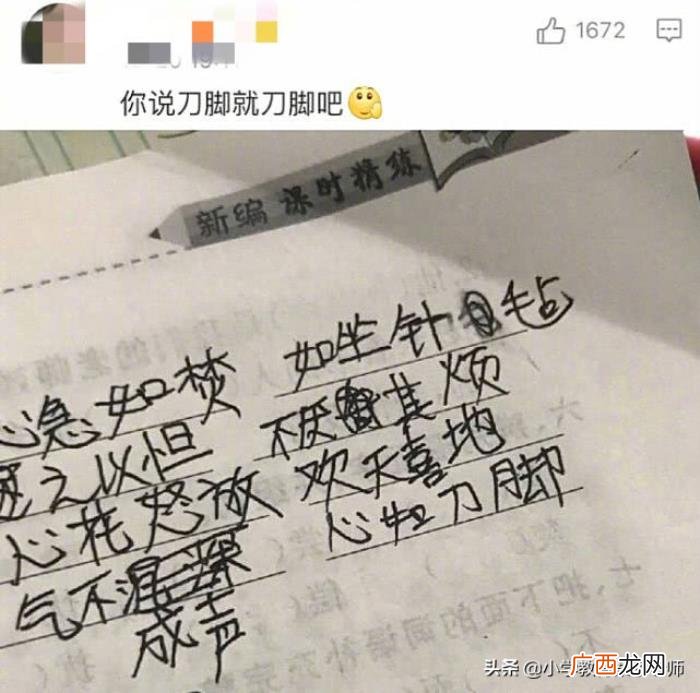 1672
你说刀脚就刀脚吧
新编 课时精练
心急如焚 如坐针毡
之以怛 不厌其烦
心花怒放 欢天喜地
气不 心如刀脚
成声
头条 @小学教 师
广西龙网